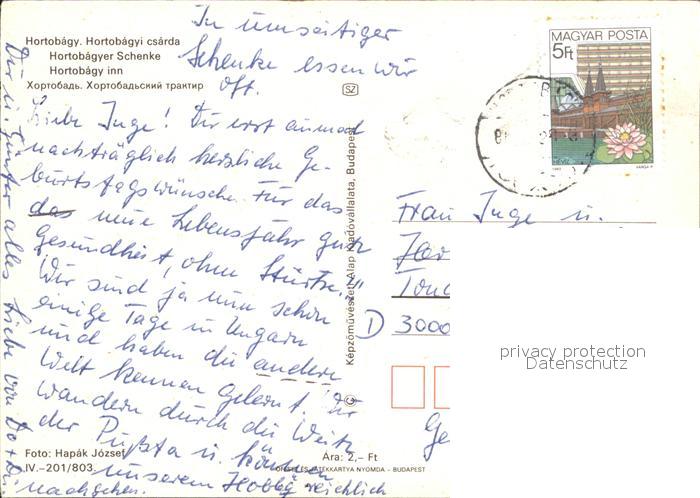 In umseitiger
Schenke essen wir
oft.
Hortobágy. Hortobágyi csárda
Hortobágyer Schenke
Hortobágy inn
Хортобадь. Хортобадьский трактир
SZ
MAGYAR POSTA
5Ft
Liebe Inge! Dir erst einmal
nachträglich herzliche Ge-
burtstagswünsche. Für das
das neue Lebensjahr gute
Gesundheit, ohne Stürze!"
Wir sind ja nun schon
einige Tage in Ungarn
und haben die andere
Welt kennen gelernt. Wir
wandern durch die Weite
der Pußta u. können
unserem Hobby reichlich
nachgehen.
Dir u. Günter alles Liebe von Do +
Képzőművészeti Alap Kiadóvállalata, Budapest
Frau Inge u.
D 3000
Ge
privacy protection
Datenschutz
Foto: Hapák József
IV.-201/803
Ára: 2,– Ft
OFFSET ÉS JÁTÉKKÁRTYA NYOMDA - BUDAPEST